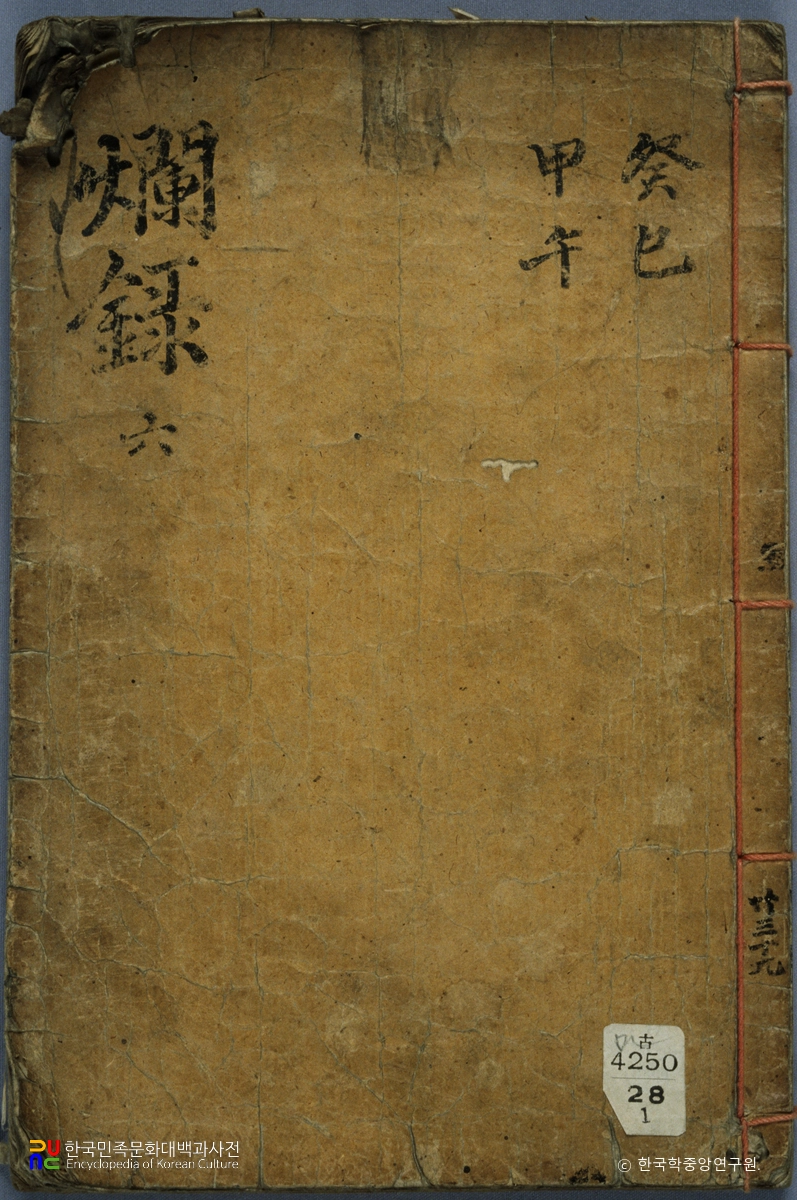 癸巳
甲午
爛録
六
古
4250
28
1
한국민족문화대백과사전
Encyclopedia of Korean Culture
© 한국학중앙연구원.